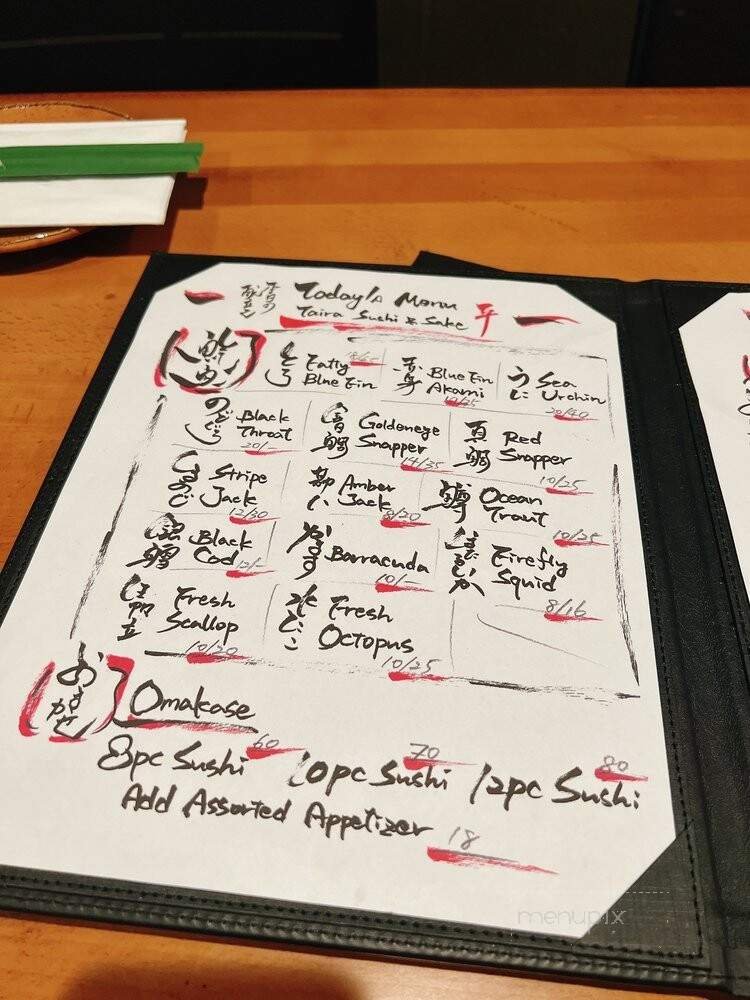 本日の
献立
Today's Menu
Taira Sushi & Sake 平
とろ Fatty Blue Fin
赤身 Blue Fin Akami
うに Sea Urchin 20/40
のどぐろ Black Throat 20/-
金目鯛 Goldeneye Snapper 14/35
真鯛 Red Snapper 10/25
しまあじ Stripe Jack 12/30
勘八 Amber Jack 8/20
鱒 Ocean Trout 10/25
銀鱈 Black Cod 12/-
かます Barracuda 10/-
ほたるいか Firefly Squid 8/16
帆立 Fresh Scallop 10/20
水だこ Fresh Octopus 10/25
おまかせ Omakase
8pc Sushi 60 10pc Sushi 70 12pc Sushi 80
Add Assorted Appetizer 18
menupix